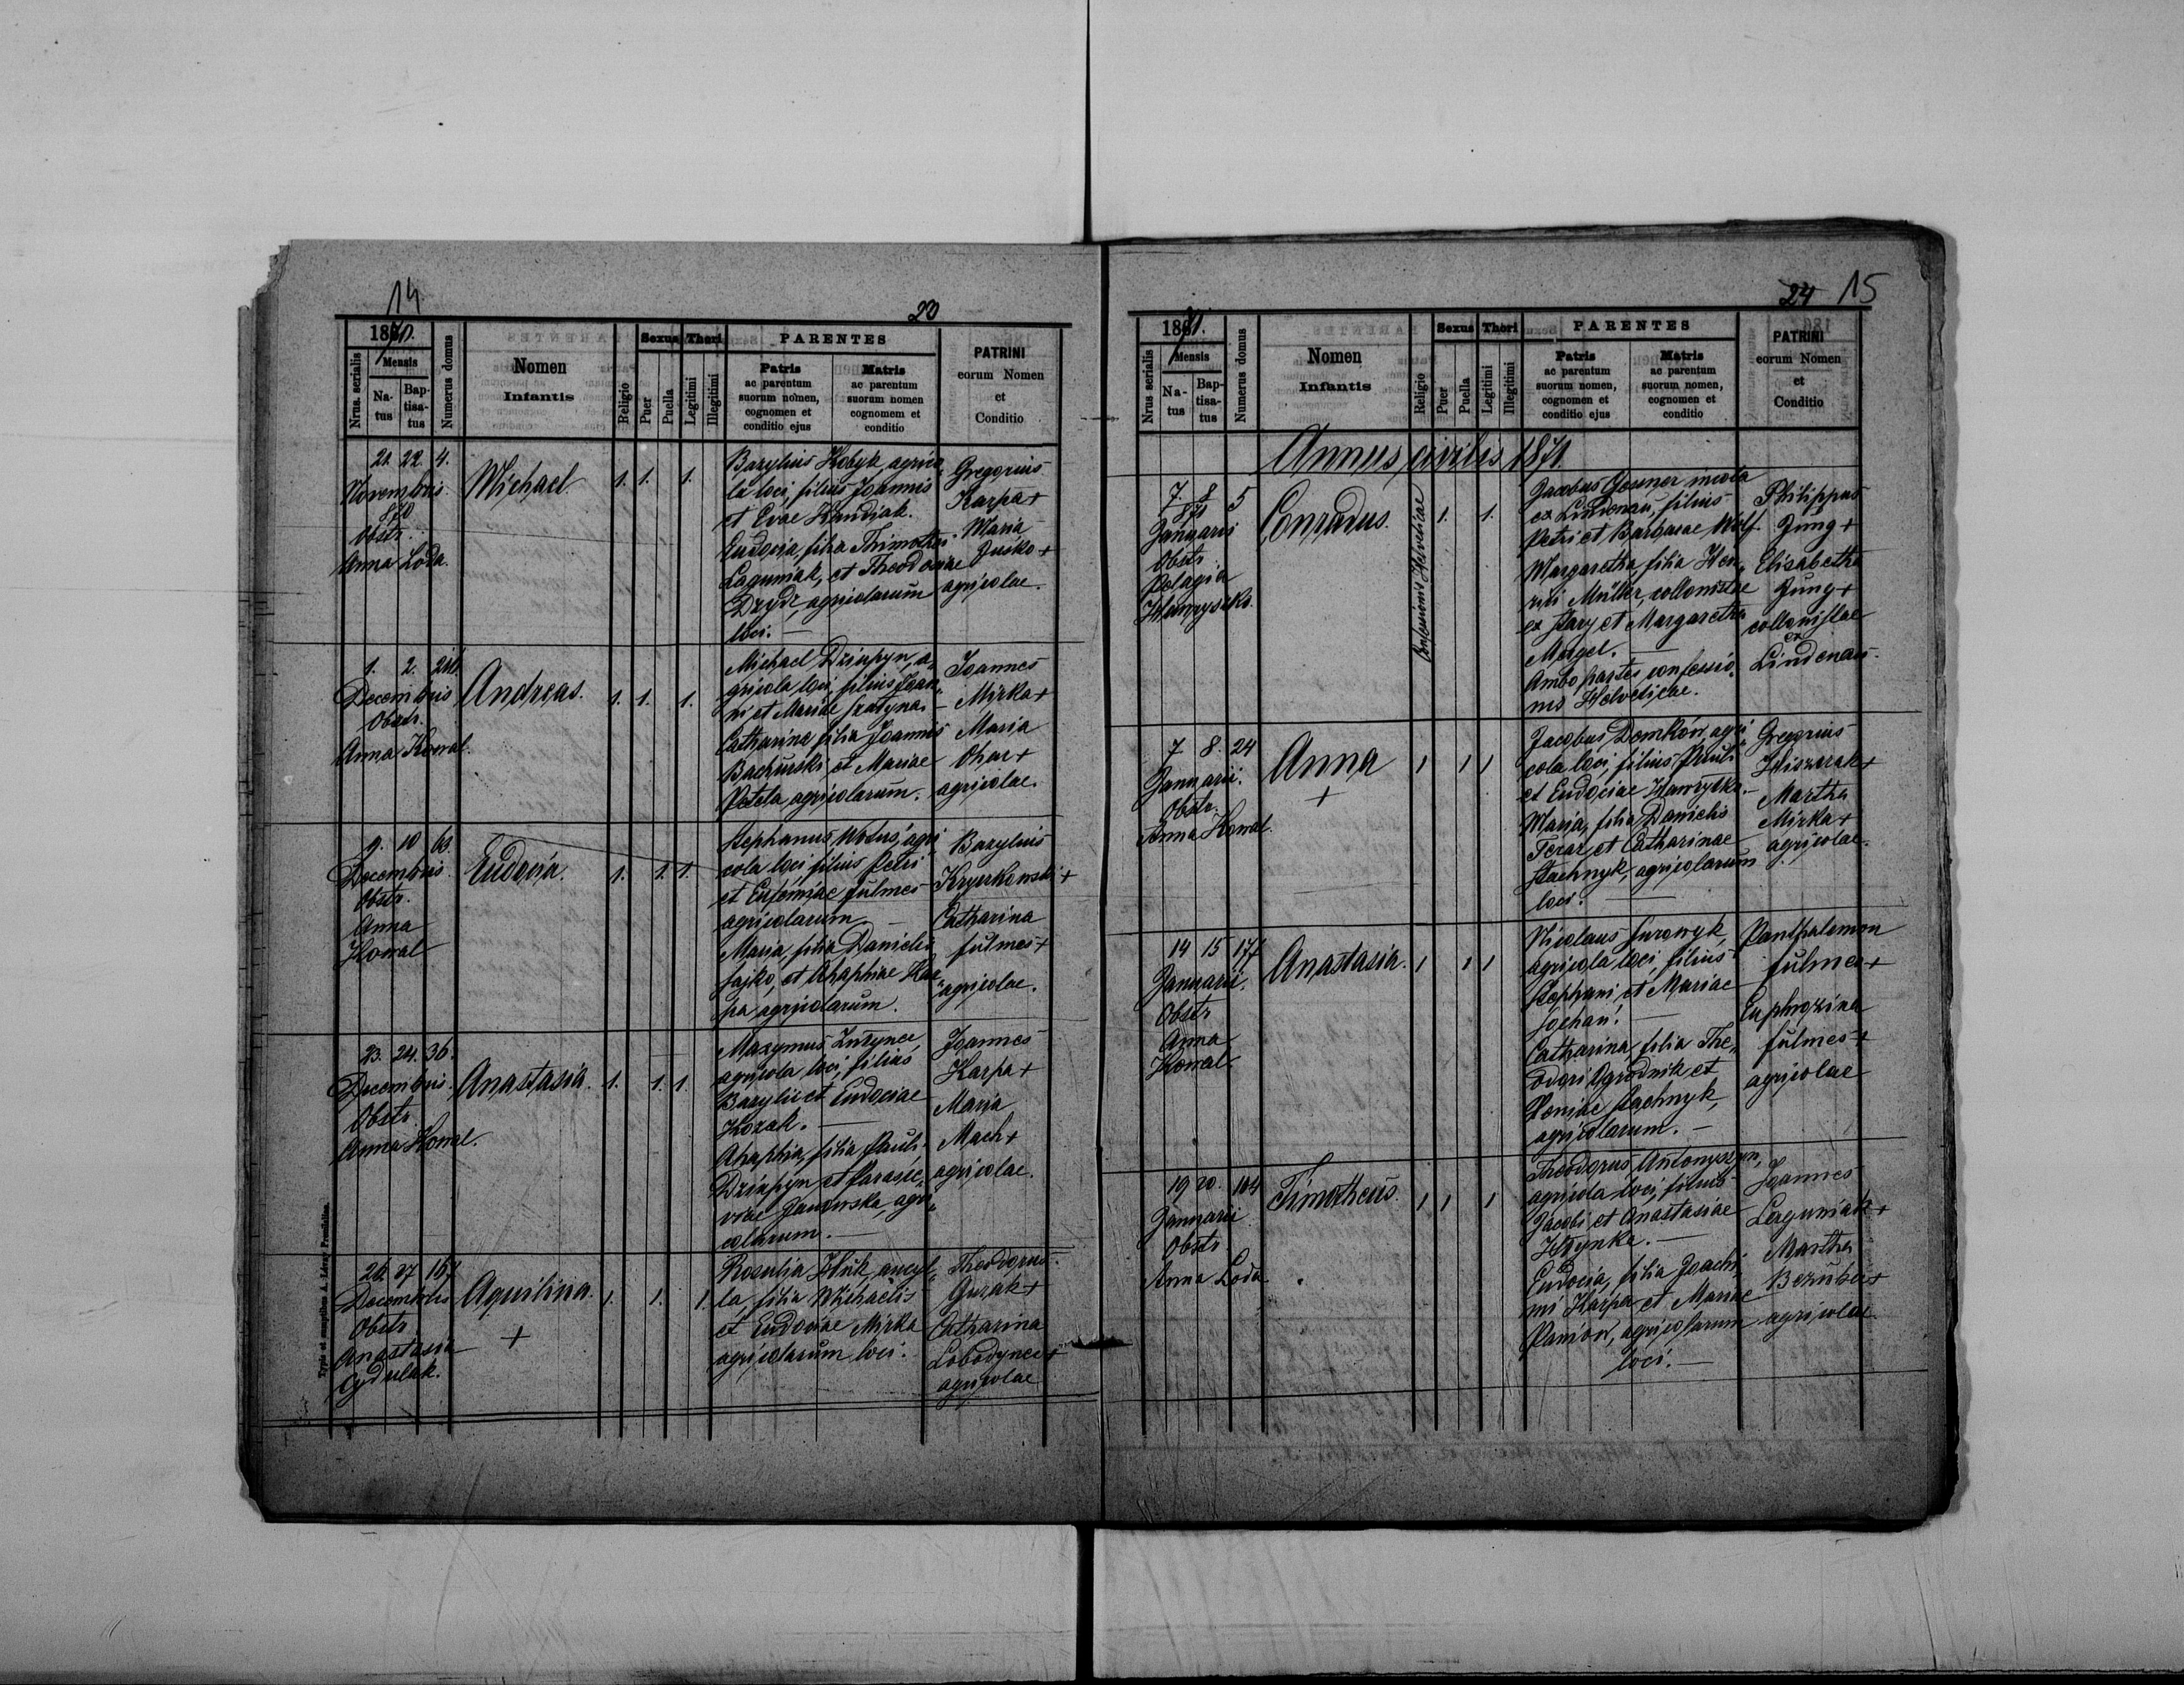 14
20
1870.
Nrus. serialis
Mensis
Na-
tus
Bap-
tisa-
tus
Numerus domus
Nomen
Infantis
Religio
Sexus
Puer
Puella
Thori
Legitimi
Illegitimi
PARENTES
Patris
ac parentum
suorum nomen,
cognomen et
conditio ejus
Matris
ac parentum
suorum nomen
cognomem et
conditio
PATRINI
eorum Nomen
et
Conditio
21. 22. 4.
Novembris
870
Obstr.
Anna Loda.
Michael
1. 1. 1.
Bazylius Kobyk, agrico
la loci, filius Joannis
et Evae Kandiak.
Eudocia, filia Thimothei
Laguniak, et Theodosiae
Dzydz, agricolarum
loci.
Gregorius
Karpa +
Maria
Jusko +
agricolae.
1. 2.
Decembris
Obstr.
Anna Kowal.
Andreas.
1. 1. 1.
Michael Dziupyn, a„
gricola loci, filius Joan„
ni et Mariae
Catharina filia Joannis
Bachurski, et Mariae
Peteta agricolarum.
Joannes
Mirka +
Maria
Ohar +
agricolae.
9. 10
Decembris
Obstr.
Anna
Kowal
Eudocia.
1. 1. 1.
Stephanus Wotus, agri
cola loci, filius Petri
et Eufemiae fulmes
agricolarum
Maria, filia Danielis
fajko, et Ahaphiae Kar„
pa agricolarum.
Bazylius
Kryczkowski +
Catharina
fulmes +
agricolae.
23. 24. 36.
Decembris.
Obstr.
Anna Kowal.
Anastasia.
1. 1. 1.
Maxymus
agricola loci, filius
Bazylii et Eudociae
Kozak.
Ahaphia, filia Pauli
Dziupyn et Parasce„
viae Janowska, agri„
colarum.
Joannes
Karpa +
Maria
Mach +
agricolae.
26. 27 167
Decembris
Obstr
Anastasia
Cydulak.
Aquilina.
+
1. 1. 1.
Rosalia Huk, ancyl„
la, filia Michaelis
et Eudociae Mirka
agricolarum loci.
Theodorus
Guzak +
Catharina
Lobodynca +
agricolae
Typis et sumptibus A. Lévay Premisliae.
24 15
1871.
Nrus serialis
Mensis
Na-
tus
Bap-
tisa-
tus
Numerus domus
Nomen
Infantis
Religio
Sexus
Puer
Puella
Thori
Legitimi
Illegitimi
PARENTES
Patris
ac parentum
suorum nomen,
cognomen et
conditio ejus
Matris
ac parentum
suorum nomen,
cognomen et
conditio
PATRINI
eorum Nomen
et
Conditio
Annus civilis 1871.
7. 8 5
871
Januarii
Obstr
Pelagia
Hawrysko.
Conradus.
Confessionis Helveticae
1. 1.
Jacobus Gesner incola
ex Lindenau, filius
Petri et Barbarae Wolf
Margaretha, filia Hen„
rici Müller, collonistae
ex Stary et Margaretha
Mogel.
Ambo partes confessio„
nis Helveticae.
Philippus
Jung +
Elisabetha
Jung +
collonistae
ex
Lindenau.
7 8. 24
Januarii.
Obstr.
Anna Kowal.
Anna
+
1 1 1
Jacobus Domkow, agri„
cola loci, filius Pauli
et Eudociae Hawrysko.
Maria, filia Danielis
Terar et Catharinae
Stachnyk, agricolarum
loci.
Gregorius
Hliszczak +
Martha
Mirka +
agricolae.
14 15 177
Januarii.
Obstr
Anna
Kowal.
Anastasia.
1 1 1
Nicolaus Surowyk,
agricola loci, filius
Stephani et Mariae
Catharina, filia The„
odori Ogrodnik et
Xeniae Stachnyk,
agricolarum.
Panthalemon
fulmes +
Euphrozina
fulmes +
agricolae
19 20. 104
Januarii
Obstr
Anna Loda.
Timotheus.
1 1 1
Theodorus Antonyszyn,
agricola loci, filius
Jacobi et Anastasiae
Hrynka.
Eudocia, filia Joachi„
mi Karpa et Mariae
Paniow, agricolarum
loci.
Joannes
Laguniak +
Martha
Bezuba +
agricolae